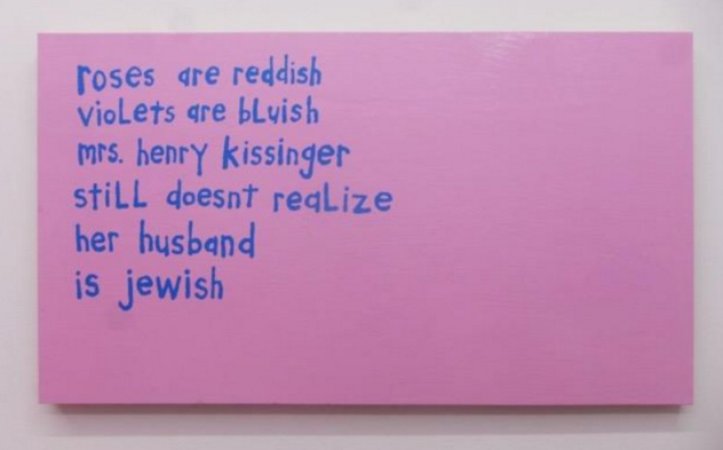 roses are reddish
vioLets are bLuish
mrs. henry kissinger
stiLL doesnt reaLize
her husband
is jewish